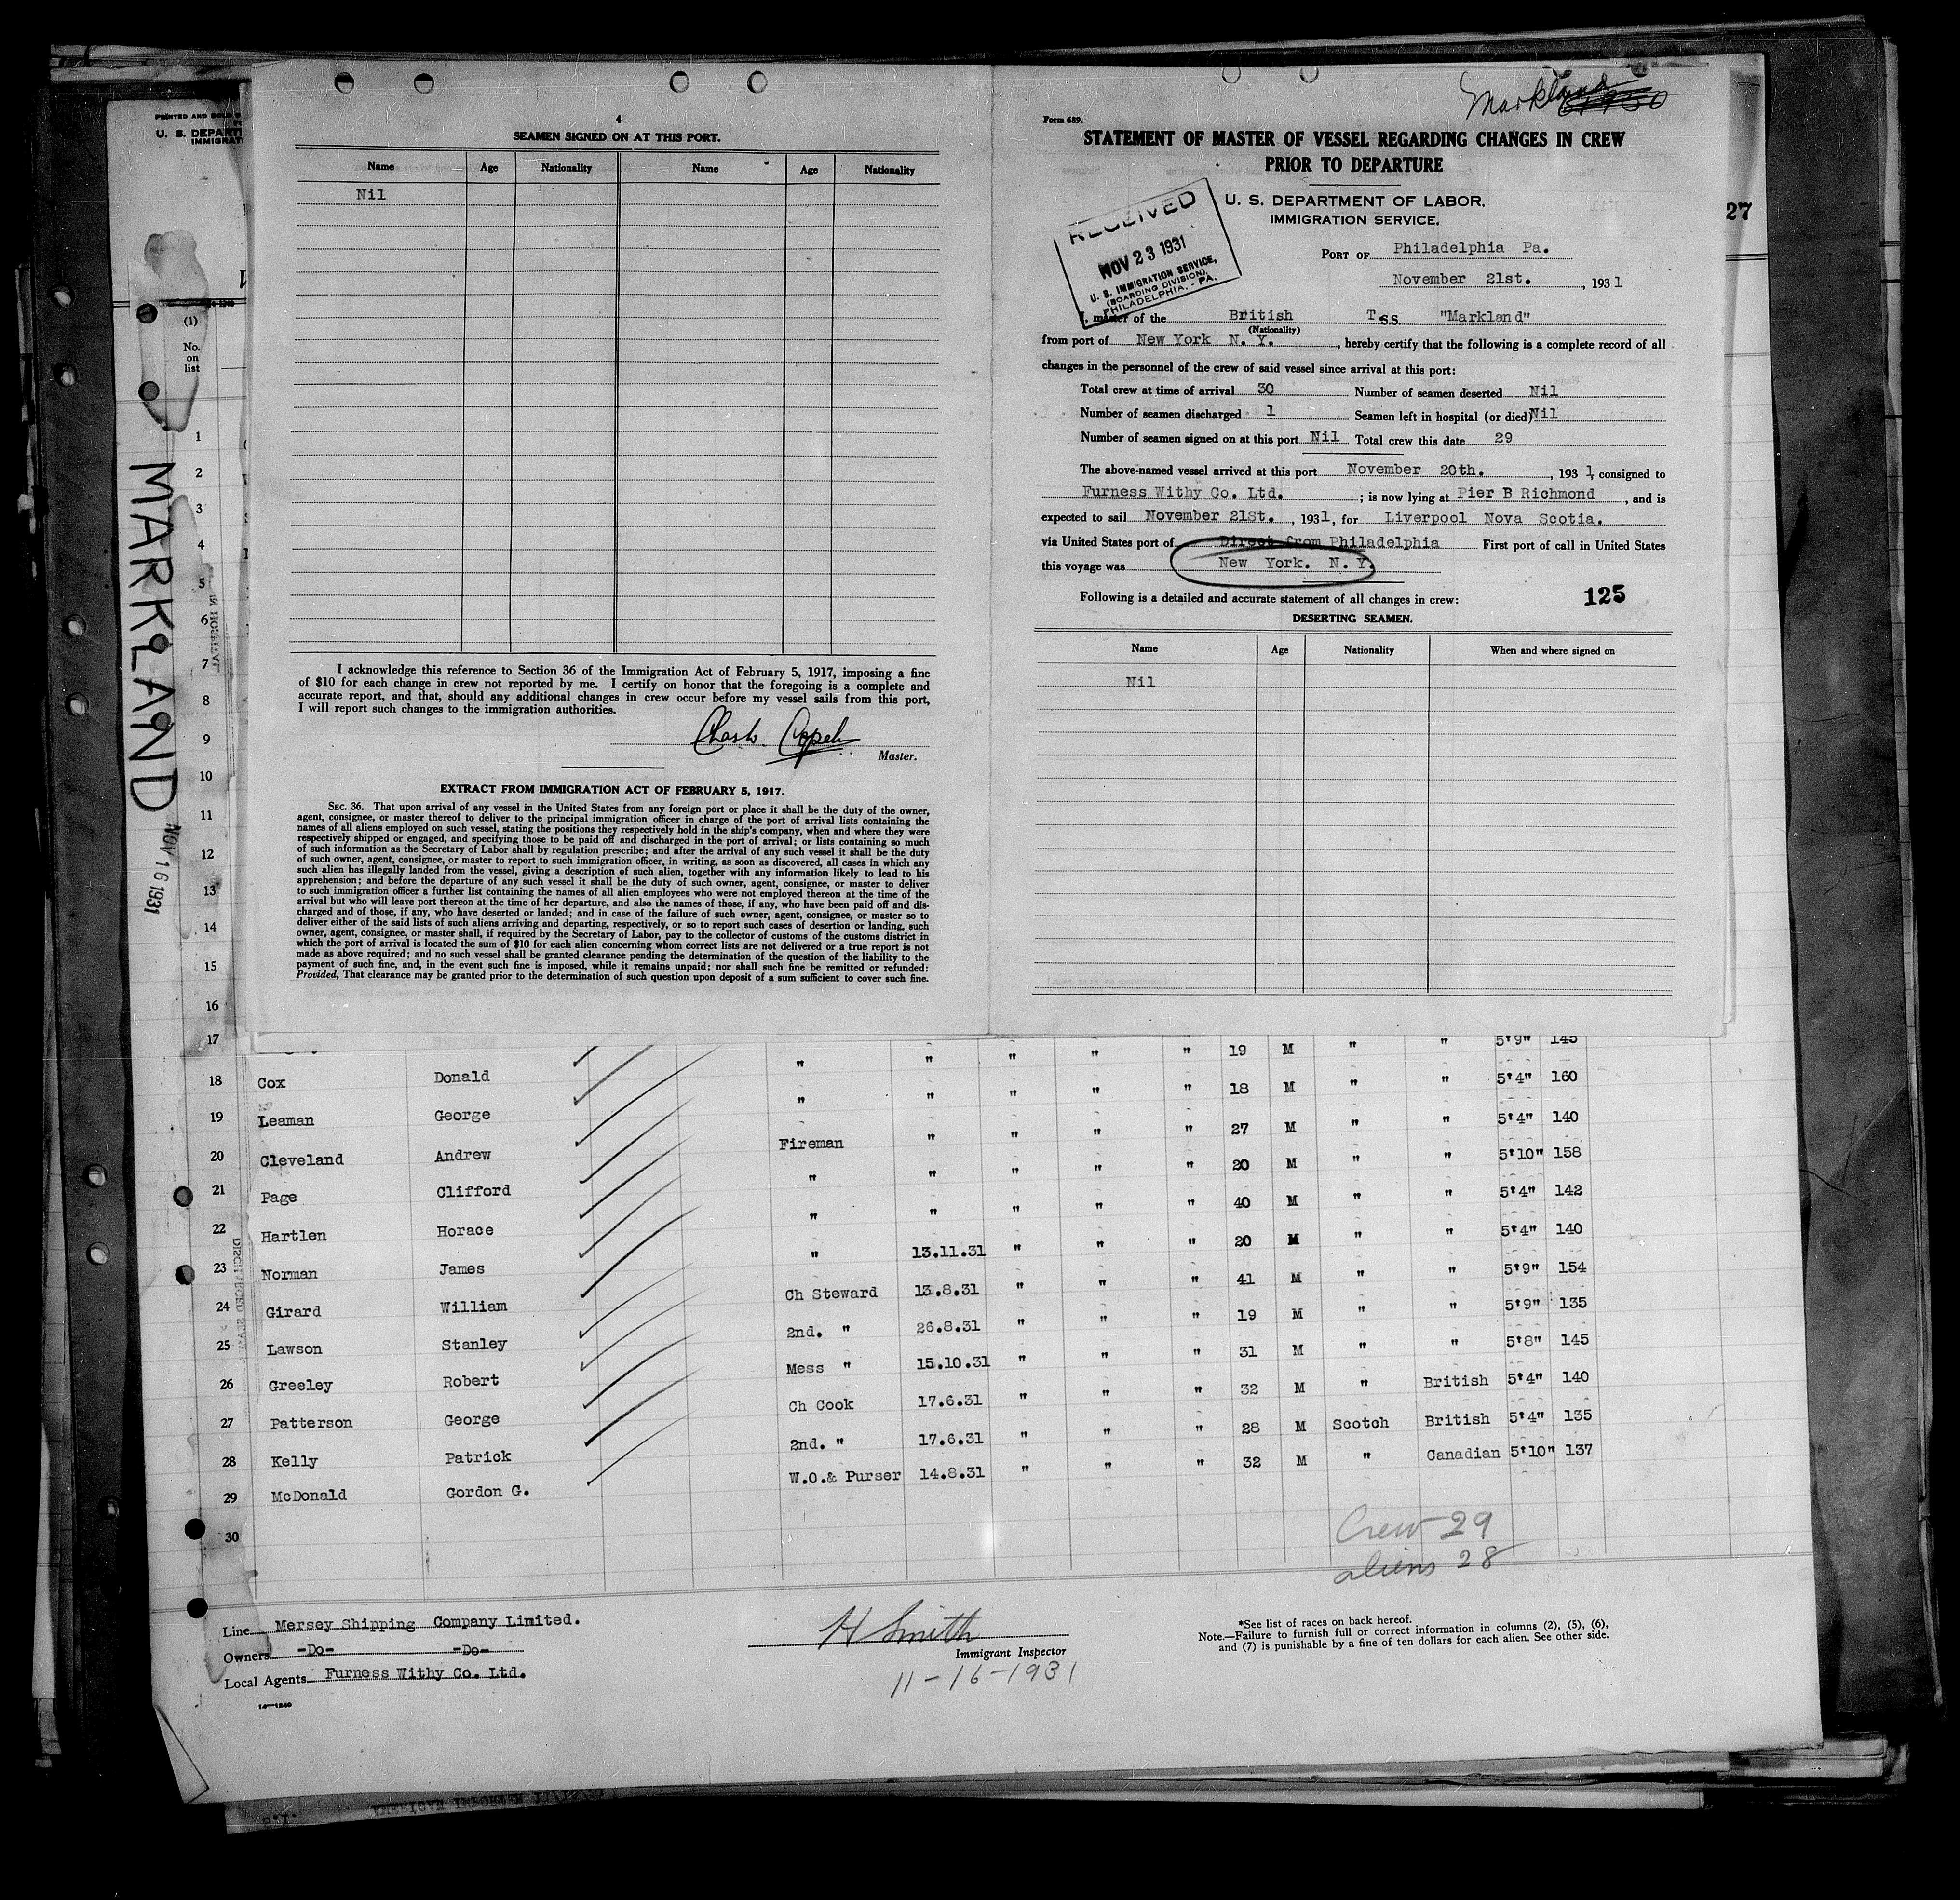 4
SEAMEN SIGNED ON AT THIS PORT.
Name Age Nationality Name Age Nationality
Nil
I acknowledge this reference to Section 36 of the Immigration Act of February 5, 1917, imposing a fine
of $10 for each change in crew not reported by me. I certify on honor that the foregoing is a complete and
accurate report, and that, should any additional changes in crew occur before my vessel sails from this port,
I will report such changes to the immigration authorities.
Master.
EXTRACT FROM IMMIGRATION ACT OF FEBRUARY 5, 1917.
SEC. 36. That upon arrival of any vessel in the United States from any foreign port or place it shall be the duty of the owner,
agent, consignee, or master thereof to deliver to the principal immigration officer in charge of the port of arrival lists containing the
names of all aliens employed on such vessel, stating the positions they respectively hold in the ship's company, when and where they were
respectively shipped or engaged, and specifying those to be paid off and discharged in the port of arrival; or lists containing so much
of such information as the Secretary of Labor shall by regulation prescribe; and after the arrival of any such vessel it shall be the duty
of such owner, agent, consignee, or master to report to such immigration officer, in writing, as soon as discovered, all cases in which any
such alien has illegally landed from the vessel, giving a description of such alien, together with any information likely to lead to his
apprehension; and before the departure of any such vessel it shall be the duty of such owner, agent, consignee, or master to deliver
to such immigration officer a further list containing the names of all alien employees who were not employed thereon at the time of the
arrival but who will leave port thereon at the time of her departure, and also the names of those, if any, who have been paid off and dis-
charged and of those, if any, who have deserted or landed; and in case of the failure of such owner, agent, consignee, or master so to
deliver either of the said lists of such aliens arriving and departing, respectively, or so to report such cases of desertion or landing, such
owner, agent, consignee, or master shall, if required by the Secretary of Labor, pay to the collector of customs of the customs district in
which the port of arrival is located the sum of $10 for each alien concerning whom correct lists are not delivered or a true report is not
made as above required; and no such vessel shall be granted clearance pending the determination of the question of the liability to the
payment of such fine, and, in the event such fine is imposed, while it remains unpaid; nor shall such fine be remitted or refunded:
Provided, That clearance may be granted prior to the determination of such question upon deposit of a sum sufficient to cover such fine.
Markland
Form 689.
STATEMENT OF MASTER OF VESSEL REGARDING CHANGES IN CREW
PRIOR TO DEPARTURE
U. S. DEPARTMENT OF LABOR,
IMMIGRATION SERVICE.
RECEIVED
NOV 23 1931
U. S. IMMIGRATION SERVICE,
(BOARDING DIVISION),
PHILADELPHIA, - PA.
PORT OF Philadelphia Pa.
November 21st. , 1931
I, master of the British T.S.S. "Markland"
(Nationality)
from port of New York N. Y. , hereby certify that the following is a complete record of all
changes in the personnel of the crew of said vessel since arrival at this port:
Total crew at time of arrival 30 Number of seamen deserted Nil
Number of seamen discharged 1 Seamen left in hospital (or died) Nil
Number of seamen signed on at this port Nil Total crew this date 29
The above-named vessel arrived at this port November 20th. , 1931, consigned to
Furness Withy Co. Ltd. ; is now lying at Pier B Richmond , and is
expected to sail November 21St. , 1931, for Liverpool Nova Scotia.
via United States port of Direct from Philadelphia First port of call in United States
this voyage was New York. N. Y.
Following is a detailed and accurate statement of all changes in crew: 125
DESERTING SEAMEN.
Name Age Nationality When and where signed on
Nil
27
U. S. DEPART
IMMIGRAT
(1)
No.
on
list
1
2
3
4
5
6
7
8
9
10
11
12
13
14
15
16
MARKLAND
NOV 16 1931
17 " " " " " 19 M " " 5'9" 145
18 Cox Donald " " " " " 18 M " " 5'4" 160
19 Leaman George Fireman " " " " 27 M " " 5'4" 140
20 Cleveland Andrew " " " " " 20 M " " 5'10" 158
21 Page Clifford " " " " " 40 M " " 5'4" 142
22 Hartlen Horace " 13.11.31 " " " 20 M " " 5'4" 140
23 Norman James Ch Steward 13.8.31 " " " 41 M " " 5'9" 154
24 Girard William 2nd. " 26.8.31 " " " 19 M " " 5'9" 135
25 Lawson Stanley Mess " 15.10.31 " " " 31 M " " 5'8" 145
26 Greeley Robert Ch Cook 17.6.31 " " " 32 M " British 5'4" 140
27 Patterson George 2nd. " 17.6.31 " " " 28 M Scotch British 5'4" 135
28 Kelly Patrick W.O.& Purser 14.8.31 " " " 32 M " Canadian 5'10" 137
29 McDonald Gordon G.
30
Crew 29
aliens 28
Line Mersey Shipping Company Limited.
Owners -Do- -Do-
Local Agents Furness Withy Co. Ltd.
14—1240
H Smith
Immigrant Inspector
11-16-1931
*See list of races on back hereof.
Note.—Failure to furnish full or correct information in columns (2), (5), (6),
and (7) is punishable by a fine of ten dollars for each alien. See other side.